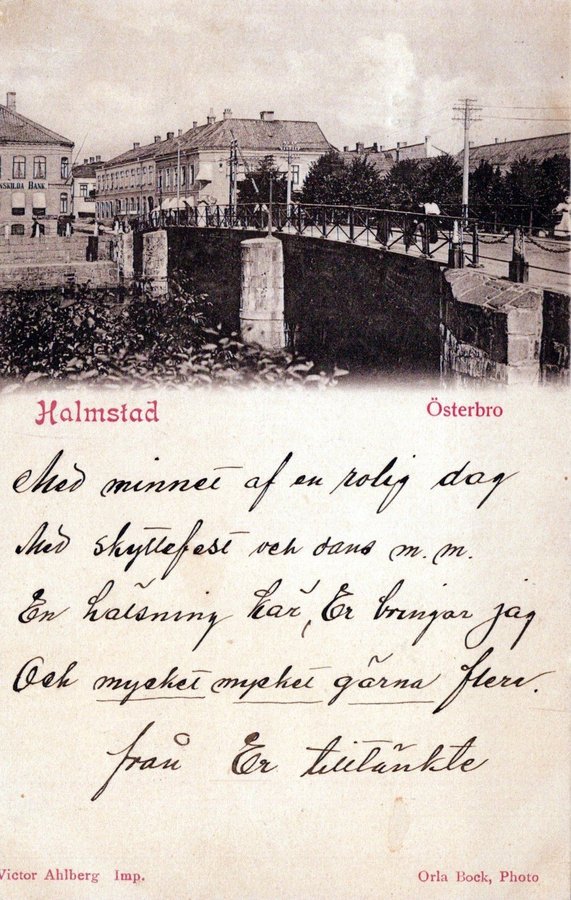 NSKILDA BANK
Halmstad
Österbro
Med minnet af en rolig dag
Med skyttefest och dans m.m.
En hälsning kär, Er bringar jag
Och mycket mycket gärna flera.
från Er tilltänkte
Victor Ahlberg Imp.
Orla Bock, Photo